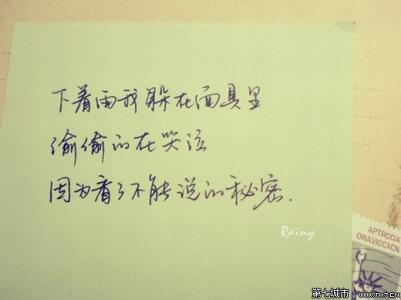 下着雨我躲在面具里
偷偷的在哭泣
因为看了不能说的秘密.
Rainy
APTRCCIA
ORAVICCXCN
第七城市